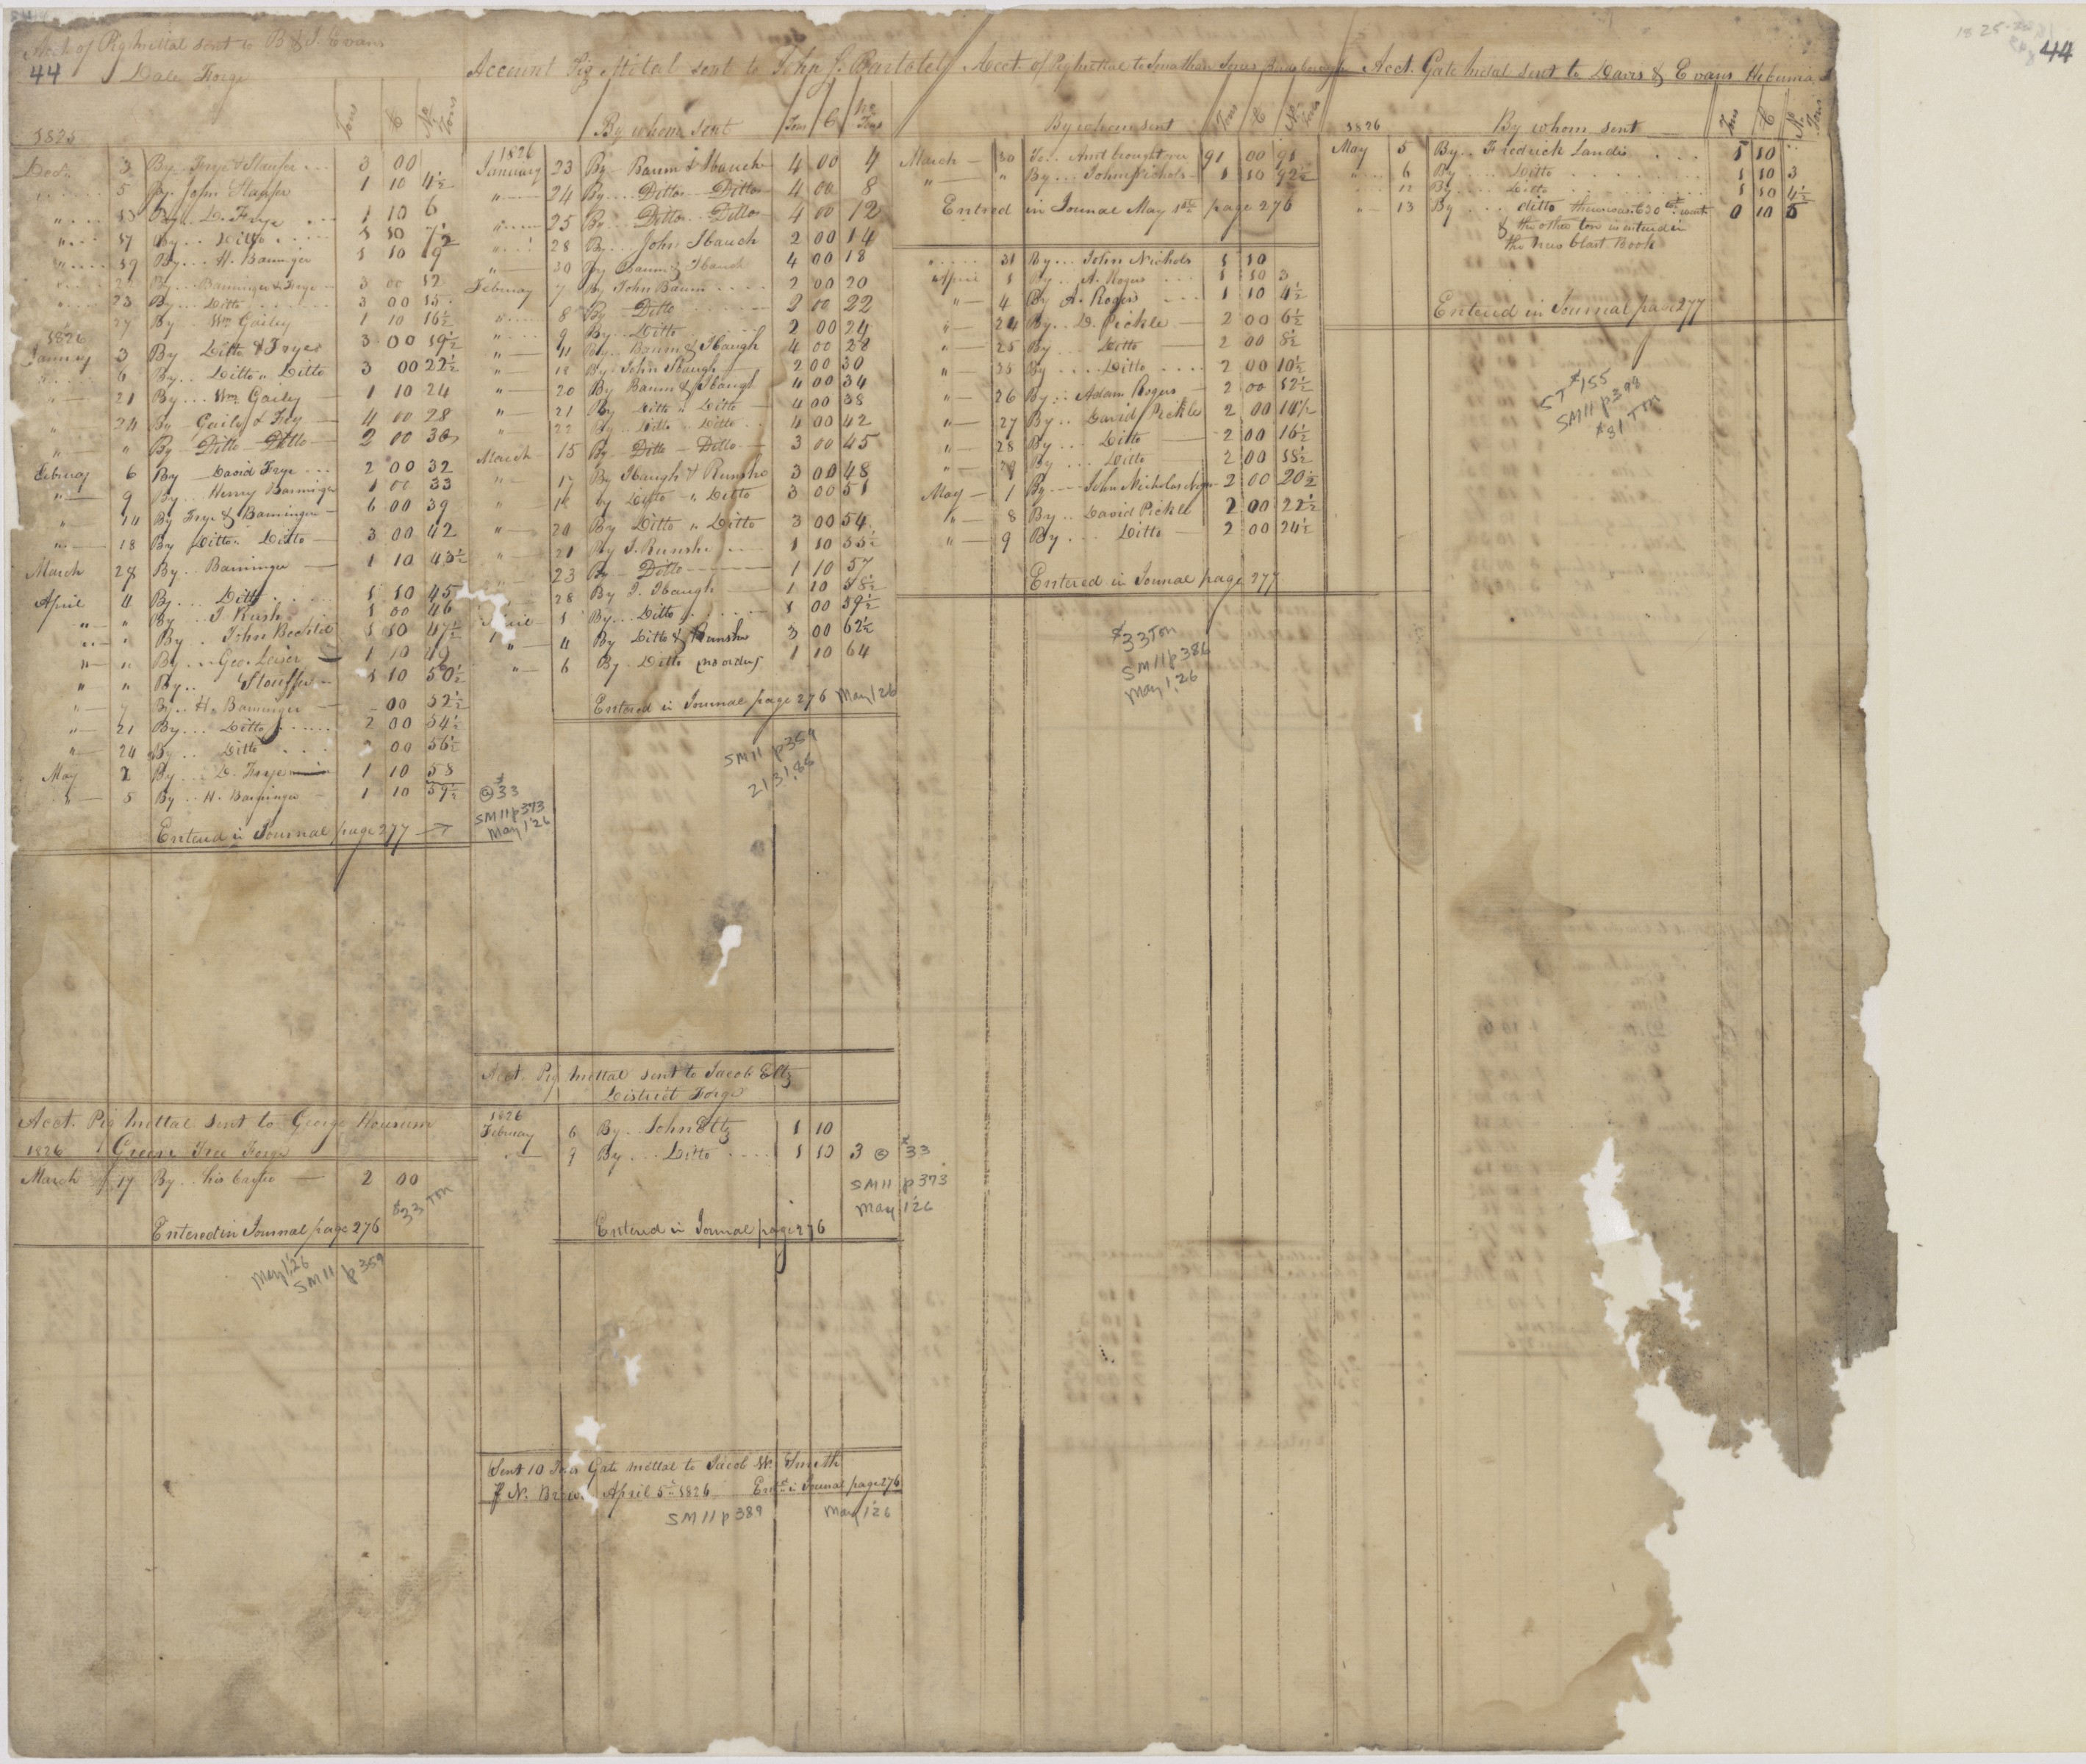 44
Acct of Pig Mettal sent to B & J. Evans
Dale Forge
Tons C No Tons
1825
Dec. 3 By Frye & Staufer 3 00
" 5 By John Staufer 1 10 4½
" 13 By D. Frye 1 10 6
" 17 By Ditto 1 10 7½
" 19 By H. Barringer 1 10 9
By Barringer & Frye 3 00 12
23 By Ditto 3 00 15
27 By Wm Gailey 1 10 16½
1826
January 3 By Ditto & Frye 3 00 19½
" 6 By Ditto " Ditto 3 00 22½
" 21 By Wm. Gailey 1 10 24
" 24 By Gailey & Frey 4 00 28
" " By Ditto Ditto 2 00 30
February 6 By David Frye 2 00 32
" 9 By Henry Barringer 1 00 33
" 14 By Frye & Barringer 6 00 39
" 18 By Ditto " Ditto 3 00 42
March 28 By Barringer 1 10 43½
April 4 By Ditto 1 10 45
" " By J. Rush 1 00 46
" " By John Bechtel 1 10 47½
" " By Geo. Leiser 1 10 49
" " By Stouffer 1 10 50½
" By H. Barringer 00 52½
" 21 By Ditto 2 00 54½
" 24 By Ditto 2 00 56½
May 2 By D. Frye 1 10 58
" 5 By H. Barringer 1 10 59½
@ $33
SM 11 p 373
May 1 '26
Entered in Journal page 277
Acct. Pig Mettal sent to George Housum
1826 Green Tree Forge
March 17 By his 2 00
$33 Ton
Entered in Journal page 276
May 1, '26
SM 11 p 359
Account Pig Mettal sent to John J. Bartolet
By whom sent Tons C No Tons
1826
January 23 By Baum & Hauch 4 00 4
" 24 By Ditto Ditto 4 00 8
" 25 By Ditto Ditto 4 00 12
" 28 By John Hauch 2 00 14
" 30 By Baum & Hauch 4 00 18
February 7 By John Baum 2 00 20
" 8 By Ditto 2 00 22
" 9 By Ditto 2 00 24
" 11 By Baum & Hbaugh 4 00 28
" 18 By John Hbaugh 2 00 30
" 20 By Baum & Hbaugh 4 00 34
" 21 By Ditto " Ditto 4 00 38
" 22 By Ditto " Ditto 4 00 42
March 15 By Ditto Ditto 3 00 45
" 17 By Hbaugh & Runshe 3 00 48
" 18 By Ditto " Ditto 3 00 51
" 20 By Ditto " Ditto 3 00 54
" 21 By J. Runshe 1 10 55½
23 By Ditto 1 10 57
28 By J. Hbaugh 1 10 58½
April 1 By Ditto 1 00 59½
" 4 By Ditto & Runshe 3 00 62½
" 6 By Ditto (no order) 1 10 64
Entered in Journal page 276 May 1 '26
SM 11 p 359
2131.88
Acct. Pig Mettal sent to Jacob Eltz
District Forge
1826
February 6 By John Eltz 1 10
" 9 By Ditto 1 10 3 @ $33
SM 11 p 373
May 1 '26
Entered in Journal page 276
Sent 10 Tons Gate Mettal to Jacob W. Smith
April 5th 1826 Entd in Journal page 276
SM 11 p 389 May 1 '26
Acct. of Pig Mettal to Jonathan
By whom sent Tons C No Tons
March 30 To Amt brought over 91 00 91
" " By John Nichols 1 10 92½
Entred in Journal May 1st page 276
" 31 By John Nichols 1 10
April 1 By A. Rogers 1 10 3
" 4 By A. Rogers 1 10 4½
" 24 By D. Pickle 2 00 6½
" 25 By Ditto 2 00 8½
" 25 By Ditto 2 00 10½
" 26 By Adam Rogers 2 00 12½
" 27 By David Pickle 2 00 14½
" 28 By Ditto 2 00 16½
" 29 By Ditto 2 00 18½
May 1 By John Nicholas 2 00 20½
" 8 By David Pickle 2 00 22½
" 9 By Ditto 2 00 24½
Entered in Journal page 277
$33 Ton
SM 11 p 386
May 1, 26
Acct. Gate Metal sent to Davis & Evans Hebernia
1826 By whom sent Tons C No Tons
May 5 By Fredrick Landis 1 10
" 6 By Ditto 1 10 3
12 By Ditto 1 10 4½
" 13 By ditto there was 630 wt. 0 10 5
& the other ton is entred in
the New blast Book
Entered in Journal page 277
5T $155
SM 11 p 393
$31 Ton
44